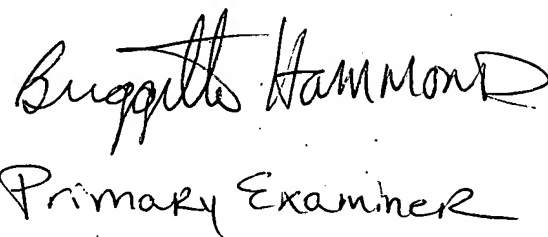 Briggitte Hammond
Primary Examiner